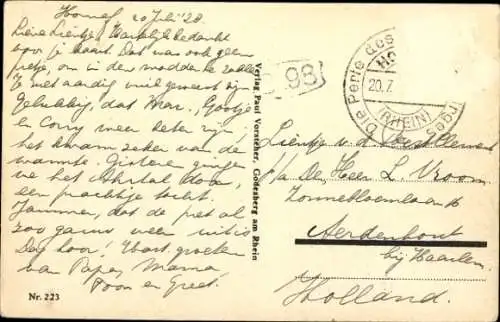 Honnef, 20 Juli '28.
Lieve Lientje, Hartelijk bedankt
voor je kaart. Dat was ook geen
pretje, om in den modder te
Ze met aardig vuil geweest zijn.
Gelukkig, dat Mar., Gootje
en Corry weer beter zijn,
het kwam zeker van de
warmte. Gisteren gingen
we het Ahrtal door,
een prachtige tocht.
Jammer, dat de pret al
zoo gauw weer uit is
Dag hoor! Hart. groeten
van Papa, Mama
Toon en Greet.
Nr. 223
Verlag Paul Vorsteher, Godesberg am Rhein
98
Die Perle des
20.7.
(RHEIN)
Lientje v. d.
p/a Den Heer L. Vroom
Zonnebloemlaan 16
Aerdenhout
bij Haarlem
Holland.